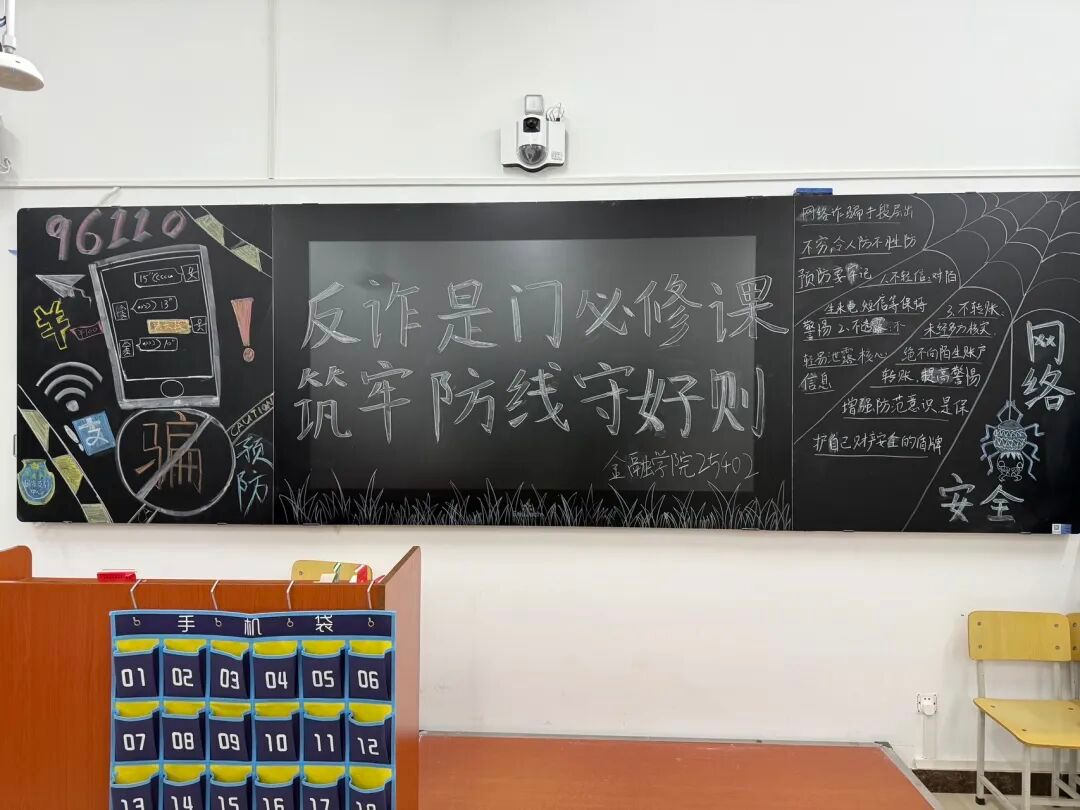 96110
15"
13"
10"
金
金
¥
¥100
支
CAUTION
骗
预防
反诈是门必修课
筑牢防线守好则
金融学院25402
网络诈骗手段层出
不穷,令人防不胜防
预防要牢记 1.不轻信:对陌
生来电,短信等保持
警惕 2.不透露:不
轻易泄露核心
信息
3.不转账
未经多方核实
绝不向陌生账户
转账,提高警惕
增强防范意识,是保
护自己财产安全的盾牌
网络
安全
手机袋
01 02 03 04 05 06
07 08 09 10 11 12
13 14 15 16 17 18